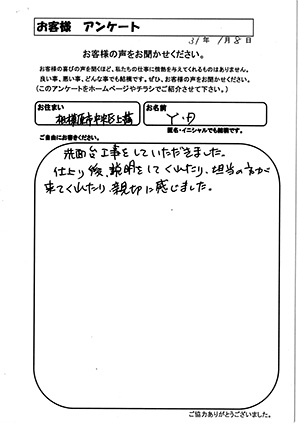 お客様 アンケート
31年 1月8日
お客様の声をお聞かせください。
お客様の喜びの声を聞くほど、私たちの仕事に情熱を与えてくれるものはありません。
良い事、悪い事、どんな事でも結構です。ぜひ、お客様の声をお聞かせください。
(このアンケートをホームページやチラシでご紹介させて下さい。)
お住まい
相模原市中央区上溝
お名前
Y・A
匿名・イニシャルでも結構です。
ご自由にお書きください。
洗面台工事をしていただきました。
仕上り後、説明をしてくれたり、担当の方が
来てくれたり、親切に感じました。
ご協力ありがとうございました。